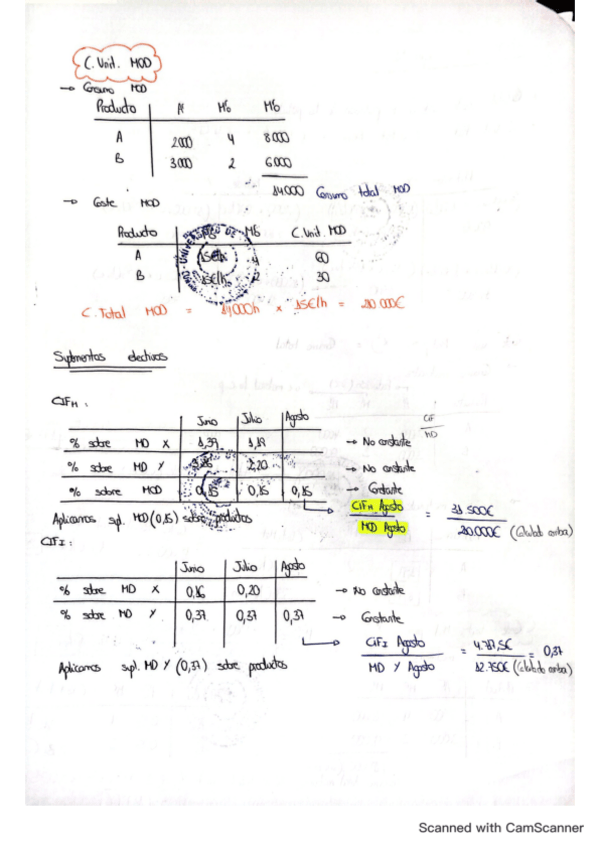 C. Unit. MOD
→ Consumo MOD
Producto N Hb Hb
A 2000 4 8000
B 3000 2 6000
14000 Consumo total MOD
→ Coste MOD
Producto Hb C. Unit. MOD
A 15€/h 4 60
B 15€/h 2 30
C. Total MOD = 14000h × 15€/h = 210.000€
Suplementos electivos
CIF
MD
CIFH:
Junio Julio Agosto
% sobre MD X 1,39 1,19 → No constante
% sobre MD Y 2,20 → No constante
% sobre MOD 0,15 0,15 0,15 → Constante
Aplicamos spl. MOD (0,15) sobre productos
CIFH Agosto = 31.500€
MOD Agosto 210.000€ (Calculado arriba)
CIFI:
Junio Julio Agosto
% sobre MD X 0,16 0,20 → No constante
% sobre MD Y 0,37 0,37 0,37 → Constante
CIFI Agosto = 4.717,5€ = 0,37
MD Y Agosto 12.750€ (Calculado arriba)
Aplicamos spl. MD Y (0,37) sobre productos
Scanned with CamScanner